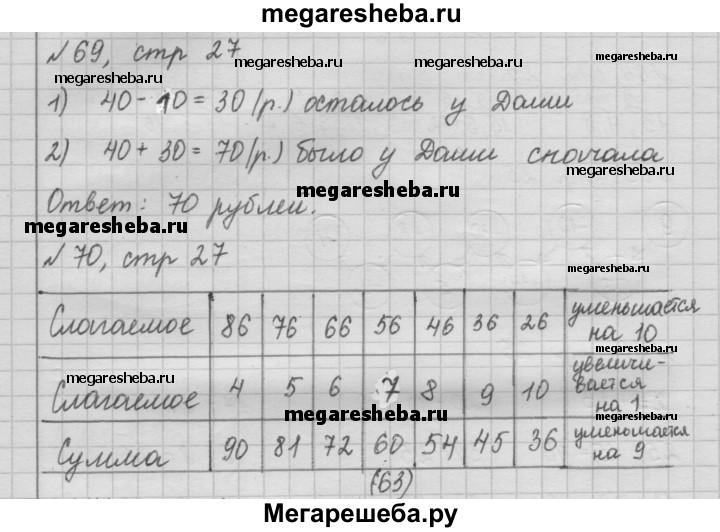 megaresheba.ru
№ 69, стр 27
megaresheba.ru
megaresheba.ru
1) 40 - 10 = 30 (р.) осталось у Даши
megaresheba.ru
2) 40 + 30 = 70 (р.) было у Даши сначала
megaresheba.ru
megaresheba.ru
Ответ: 70 рублей.
megaresheba.ru
№ 70, стр 27
megaresheba.ru
Слагаемое 86 76 66 56 46 36 26 уменьшается на 10
megaresheba.ru
Слагаемое 4 5 6 7 8 9 10 увеличи-вается на 1
megaresheba.ru
Сумма 90 81 72 60 54 45 36 уменьшается на 9
(63)
Мегарешеба.ру